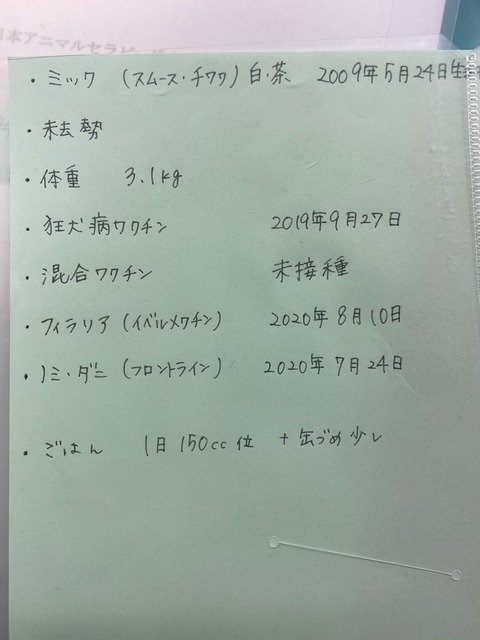 日本アニマルセラピー
・ミック (スムース・チワワ) 白・茶 2009年5月24日生
・未去勢
・体重 3.1kg
・狂犬病ワクチン 2019年9月27日
・混合ワクチン 未接種
・フィラリア (イベルメクチン) 2020年8月10日
・ノミ・ダニ (フロントライン) 2020年7月24日
・ごはん 1日150cc位 +缶づめ少し